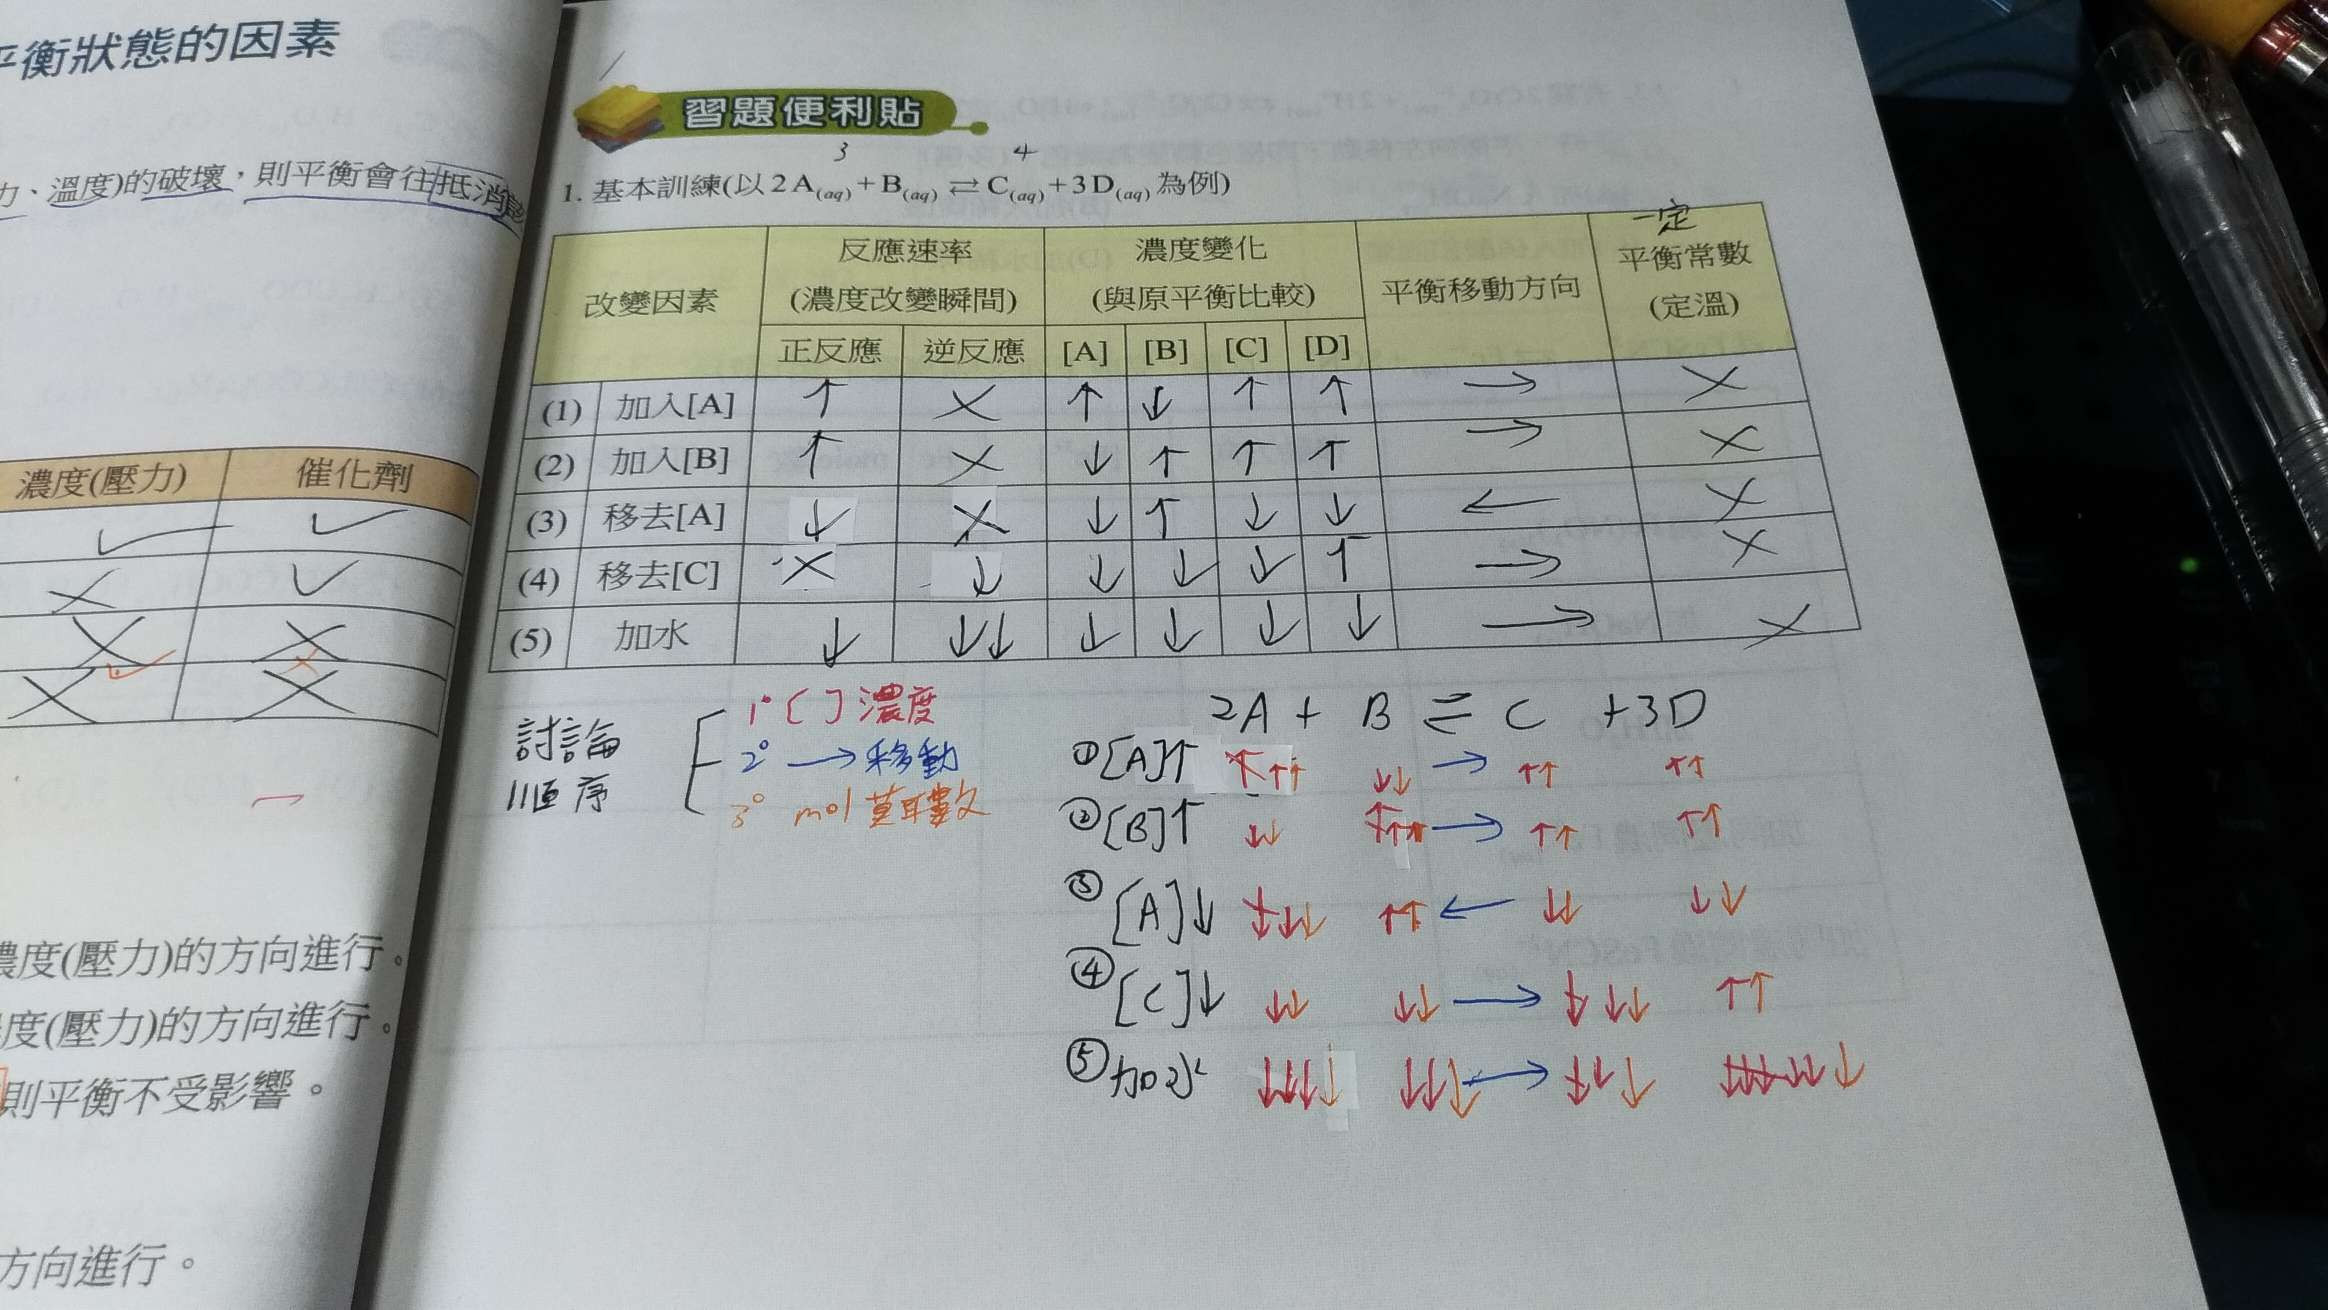 平衡狀態的因素
力、溫度)的破壞，則平衡會往抵消
濃度(壓力) 催化劑
✓ ✓
× ✓
× ×
✓ ×
× ×
濃度(壓力)的方向進行。
度(壓力)的方向進行。
則平衡不受影響。
方向進行。
習題便利貼
3 4
1. 基本訓練(以2A(aq)+B(aq)⇄C(aq)+3D(aq)為例)
一定
改變因素 反應速率 (濃度改變瞬間) 濃度變化 (與原平衡比較) 平衡移動方向 平衡常數 (定溫)
正反應 逆反應 [A] [B] [C] [D]
(1) 加入[A] ↑ × ↑ ↓ ↑ ↑ → ×
(2) 加入[B] ↑ × ↓ ↑ ↑ ↑ → ×
(3) 移去[A] ↓ × ↓ ↑ ↓ ↓ ← ×
(4) 移去[C] × ↓ ↓ ↓ ↓ ↑ → ×
(5) 加水 ↓ ↓↓ ↓ ↓ ↓ ↓ → ×
討論
順序
1° [ ] 濃度
2° → 移動
3° mol 莫耳數
2A + B ⇌ C +3D
①[A]↑ ↑↑↑ ↓↓ → ↑↑ ↑↑
②[B]↑ ↓↓ ↑↑↑ → ↑↑ ↑↑
③[A]↓ ↓↓↓ ↑↑ ← ↓↓ ↓↓
④[C]↓ ↓↓ ↓↓ → ↓↓↓ ↑↑
⑤加水 →